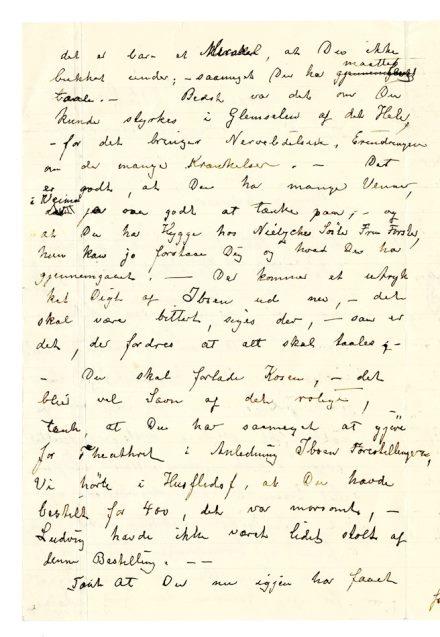 det er bare et Mirakel, at Du ikke
bukket under; – saameget Du har maattet
taale. – Bedst var det om Du
kunde styrkes i Glemselen af det Hele,
– for det bringer Nervelidelse, Erindringen
om de mange Krænkelser. – Det
er godt, at Du har mange Venner,
i Weimar ja var godt at tænke paa, – og
at Du har Hygge hos Søster Fru
hun kan jo forstaae Dig og hvad Du har
gjennemgaaet. – Der kommer et utryk
ket Digt af Ibsen ud nu, – det
skal være bittert, siges der, – saa er
det, der fordres at alt skal taales
– Du skal forlade Kosen, – det
blir vel Savn af det rolige,
tænk, at Du har saameget at gjøre
for Theathret i Anledning Ibsen Forestillingerne,
Vi hørte i Husflidsf, at Du havde
bestilt for 400, det var morsomt, –
Ludvig havde ikke været lidet stolt af
denne Bestilling. – –
Tænk at Du nu igjen har faaet